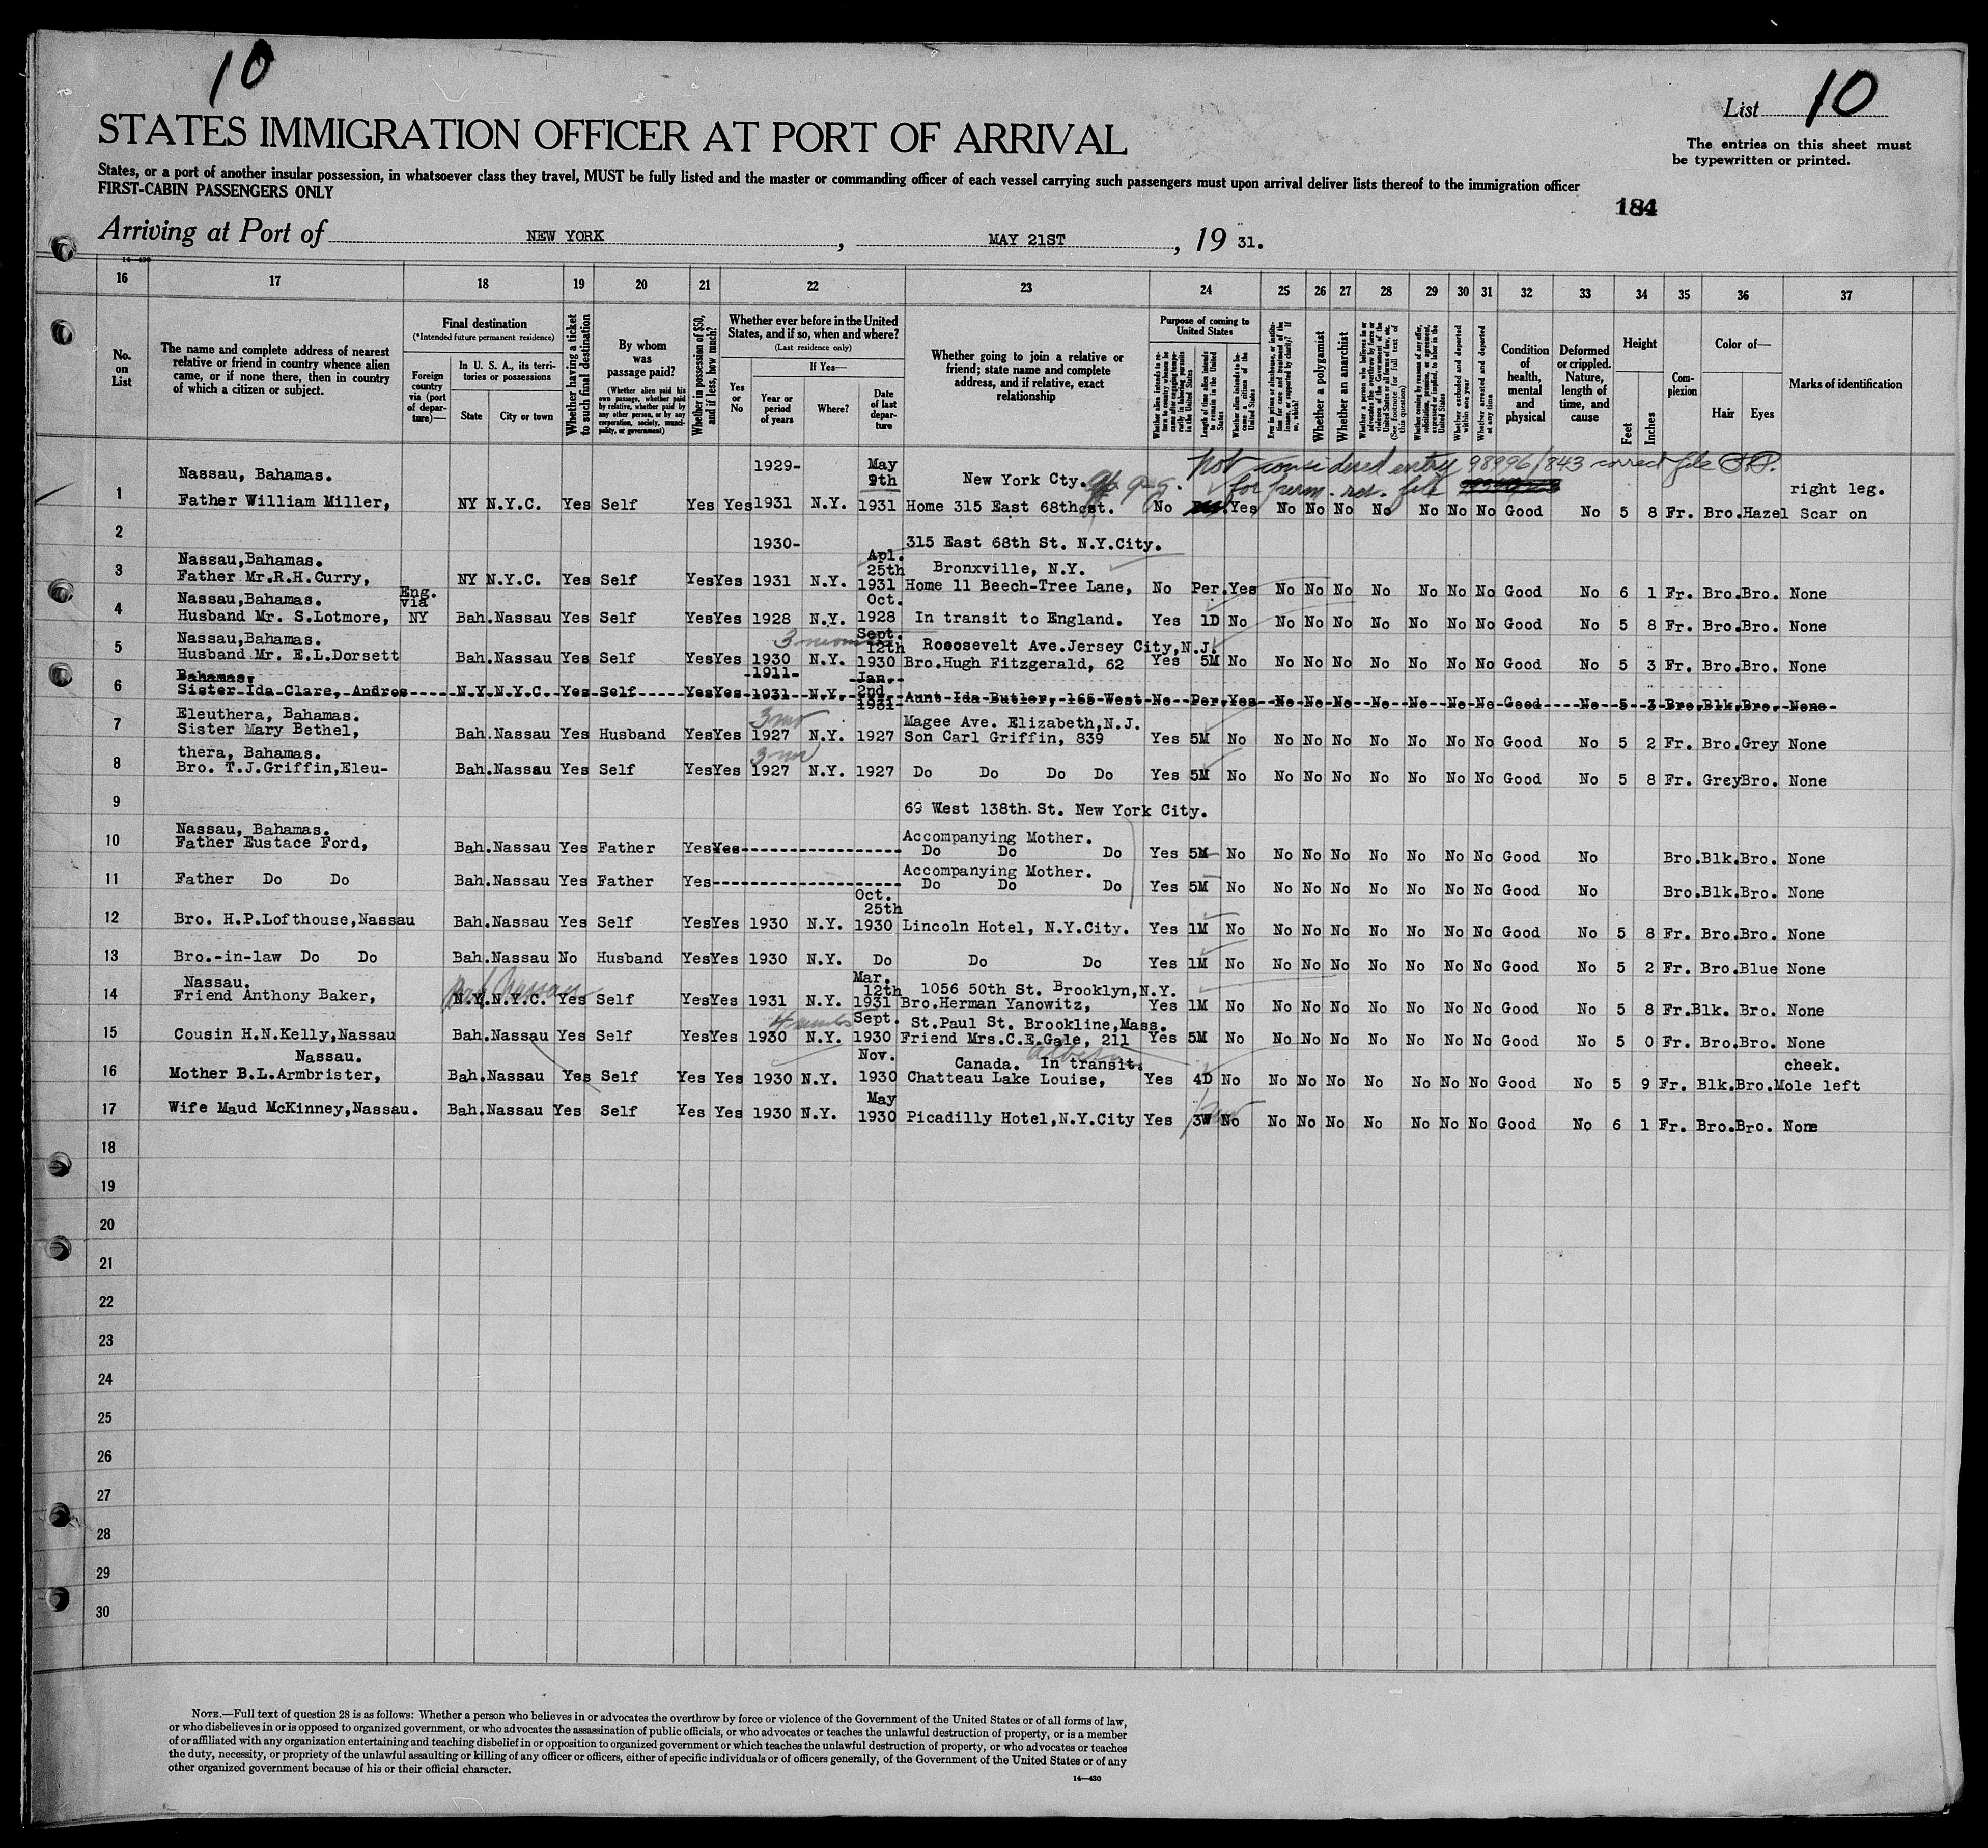 10
List 10
STATES IMMIGRATION OFFICER AT PORT OF ARRIVAL
The entries on this sheet must
be typewritten or printed.
States, or a port of another insular possession, in whatsoever class they travel, MUST be fully listed and the master or commanding officer of each vessel carrying such passengers must upon arrival deliver lists thereof to the immigration officer
FIRST-CABIN PASSENGERS ONLY
184
Arriving at Port of NEW YORK, MAY 21ST, 19 31.
14-430
16 17 18 19 20 21 22 23 24 25 26 27 28 29 30 31 32 33 34 35 36 37
No. on List
The name and complete address of nearest relative or friend in country whence alien came, or if none there, then in country of which a citizen or subject.
Final destination
(*Intended future permanent residence)
Foreign country via (port of departure)—
In U. S. A., its territories or possessions
State
City or town
Whether having a ticket to such final destination
By whom was passage paid?
(Whether alien paid his own passage, whether paid by relative, whether paid by any other person, or by any corporation, society, municipality, or government)
Whether in possession of $50, and if less, how much?
Whether ever before in the United States, and if so, when and where?
(Last residence only)
If Yes—
Yes or No
Year or period of years
Where?
Date of last departure
Whether going to join a relative or friend; state name and complete address, and if relative, exact relationship
Purpose of coming to United States
Whether alien intends to return to country whence he came after engaging temporarily in laboring pursuits in the United States
Length of time alien intends to remain in the United States
Whether alien intends to become a citizen of the United States
Ever in prison or almshouse, or institution for care and treatment of the insane, or supported by charity? If so, which?
Whether a polygamist
Whether an anarchist
Whether a person who believes in or advocates the overthrow by force or violence of the Government of the United States or all forms of law, etc. (See footnote for full text of this question)
Whether coming by reason of any offer, solicitation, promise, or agreement, expressed or implied, to labor in the United States
Whether excluded and deported within one year
Whether arrested and deported at any time
Condition of health, mental and physical
Deformed or crippled. Nature, length of time, and cause
Height
Feet
Inches
Complexion
Color of—
Hair
Eyes
Marks of identification
Not considered entry 98996/843 correct file
for perm. res. file
Nassau, Bahamas. 1929- May 9th New York Cty. right leg.
1 Father William Miller, NY N.Y.C. Yes Self Yes Yes 1931 N.Y. 1931 Home 315 East 68th st. No Yes No No No No No No No Good No 5 8 Fr. Bro. Hazel Scar on
2 1930- 315 East 68th St. N.Y.City.
Nassau,Bahamas. Apl. 25th Bronxville, N.Y.
3 Father Mr.R.H.Curry, NY N.Y.C. Yes Self Yes Yes 1931 N.Y. 1931 Home 11 Beech-Tree Lane, No Per. Yes No No No No No No No Good No 6 1 Fr. Bro. Bro. None
Nassau,Bahamas. Eng. via Oct.
4 Husband Mr. S.Lotmore, NY Bah. Nassau Yes Self Yes Yes 1928 N.Y. 1928 In transit to England. Yes 1D No No No No No No No No Good No 5 8 Fr. Bro. Bro. None
Nassau,Bahamas. Sept. 12th Roosevelt Ave.Jersey City,N.J.
5 Husband Mr. E.L.Dorsett Bah. Nassau Yes Self Yes Yes 1930 N.Y. 1930 Bro.Hugh Fitzgerald, 62 Yes 5M No No No No No No No No Good No 5 3 Fr. Bro. Bro. None
Bahamas. 1911- Jan. 2nd
6 Sister Ida Clare, Andros N.Y. N.Y.C. Yes Self Yes Yes 1931 N.Y. 1931 Aunt Ida Butler, 165 West No Per. Yes No No No No No No No Good No 5 3 Bro. Blk. Bro. None
Eleuthera, Bahamas. 3 mo Magee Ave. Elizabeth,N.J.
7 Sister Mary Bethel, Bah. Nassau Yes Husband Yes Yes 1927 N.Y. 1927 Son Carl Griffin, 839 Yes 5M No No No No No No No No Good No 5 2 Fr. Bro. Grey None
thera, Bahamas. 3 mo
8 Bro. T.J.Griffin,Eleu- Bah. Nassau Yes Self Yes Yes 1927 N.Y. 1927 Do Do Do Do Yes 5M No No No No No No No No Good No 5 8 Fr. Grey Bro. None
9 69 West 138th St. New York City.
Nassau, Bahamas. Accompanying Mother.
10 Father Eustace Ford, Bah. Nassau Yes Father Yes Yes Do Do Do Yes 5M No No No No No No No No Good No Bro. Blk. Bro. None
Accompanying Mother.
11 Father Do Do Bah. Nassau Yes Father Yes Do Do Do Yes 5M No No No No No No No No Good No Bro. Blk. Bro. None
Oct. 25th
12 Bro. H.P.Lofthouse,Nassau Bah. Nassau Yes Self Yes Yes 1930 N.Y. 1930 Lincoln Hotel, N.Y.City. Yes 1M No No No No No No No No Good No 5 8 Fr. Bro. Bro. None
13 Bro.-in-law Do Do Bah. Nassau No Husband Yes Yes 1930 N.Y. Do Do Do Yes 1M No No No No No No No No Good No 5 2 Fr. Bro. Blue None
Nassau. Nassau Mar. 12th 1056 50th St. Brooklyn,N.Y.
14 Friend Anthony Baker, N.Y. N.Y.C. Yes Self Yes Yes 1931 N.Y. 1931 Bro.Herman Yanowitz, Yes 1M No No No No No No No No Good No 5 8 Fr. Blk. Bro. None
Sept. St.Paul St. Brookline,Mass.
15 Cousin H.N.Kelly,Nassau Bah. Nassau Yes Self Yes Yes 1930 N.Y. 1930 Friend Mrs.C.E.Gale, 211 Yes 5M No No No No No No No No Good No 5 0 Fr. Bro. Bro. None
Nassau. Nov. Canada. In transit. cheek.
16 Mother B.L.Armbrister, Bah. Nassau Yes Self Yes Yes 1930 N.Y. 1930 Chatteau Lake Louise, Yes 4D No No No No No No No No Good No 5 9 Fr. Blk. Bro. Mole left
May
17 Wife Maud McKinney,Nassau. Bah. Nassau Yes Self Yes Yes 1930 N.Y. 1930 Picadilly Hotel,N.Y.City Yes 3W No No No No No No No No Good No 6 1 Fr. Bro. Bro. None
18
19
20
21
22
23
24
25
26
27
28
29
30
NOTE.—Full text of question 28 is as follows: Whether a person who believes in or advocates the overthrow by force or violence of the Government of the United States or of all forms of law,
or who disbelieves in or is opposed to organized government, or who advocates the assassination of public officials, or who advocates or teaches the unlawful destruction of property, or is a member
of or affiliated with any organization entertaining and teaching disbelief in or opposition to organized government or which teaches the unlawful destruction of property, or who advocates or teaches
the duty, necessity, or propriety of the unlawful assaulting or killing of any officer or officers, either of specific individuals or of officers generally, of the Government of the United States or of any
other organized government because of his or their official character.
14-430